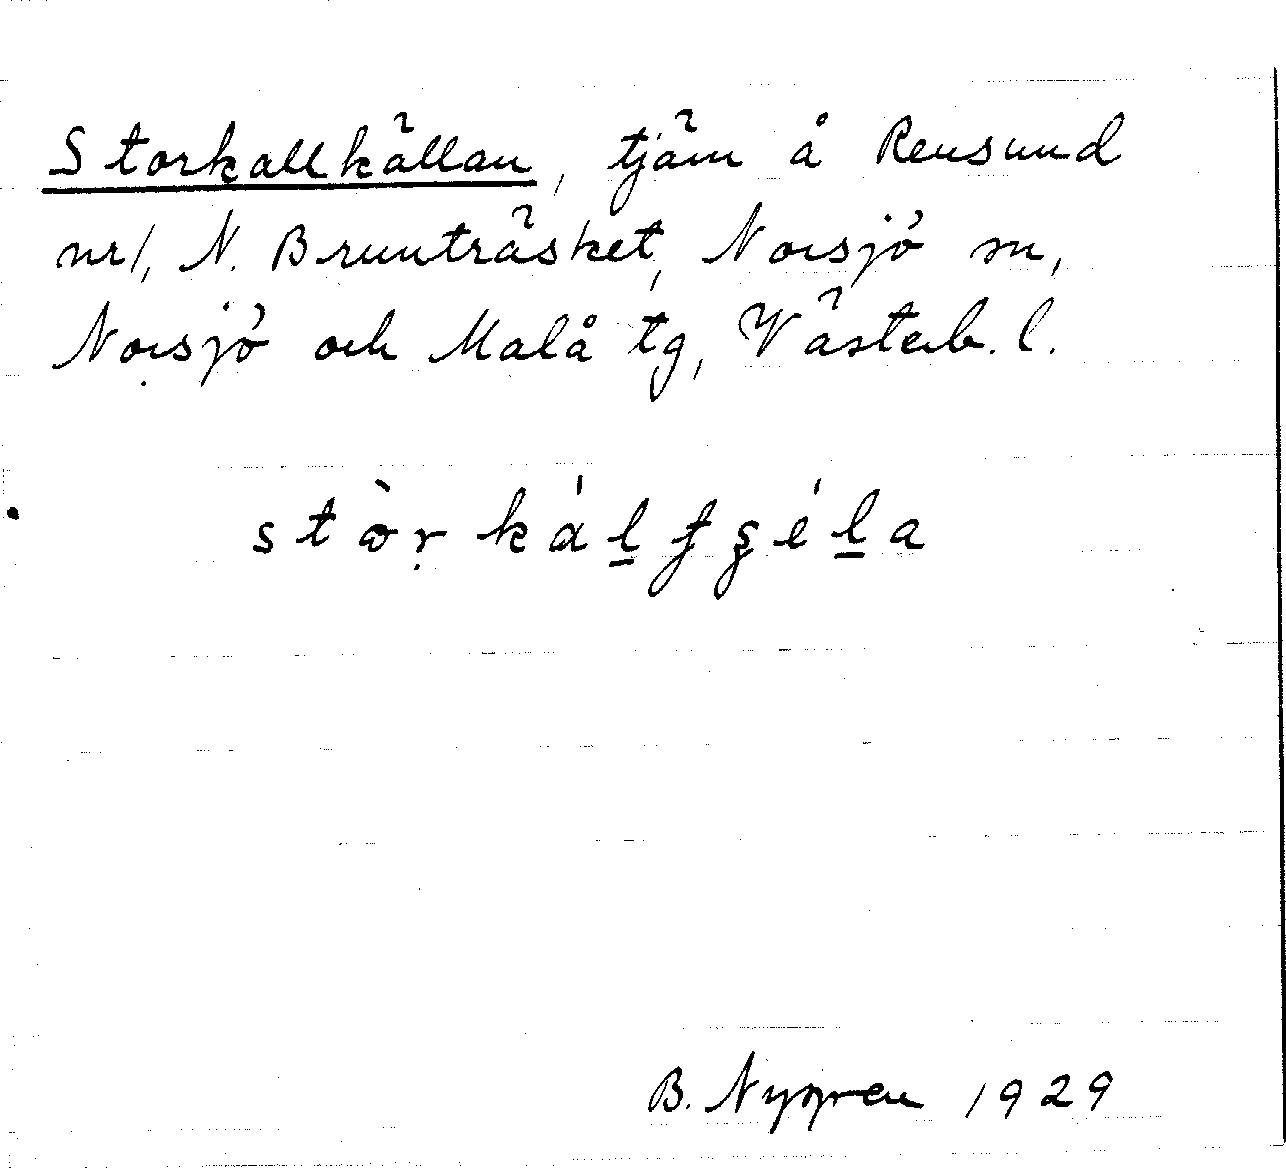 Storkallkällan, tjäm å Rensund
nr 1, N. Bruntråsket, Norsjö sn,
Norsjö och Malå tg, Västerb. l.
stòrkálʄʂéla
B. Nygren 1929